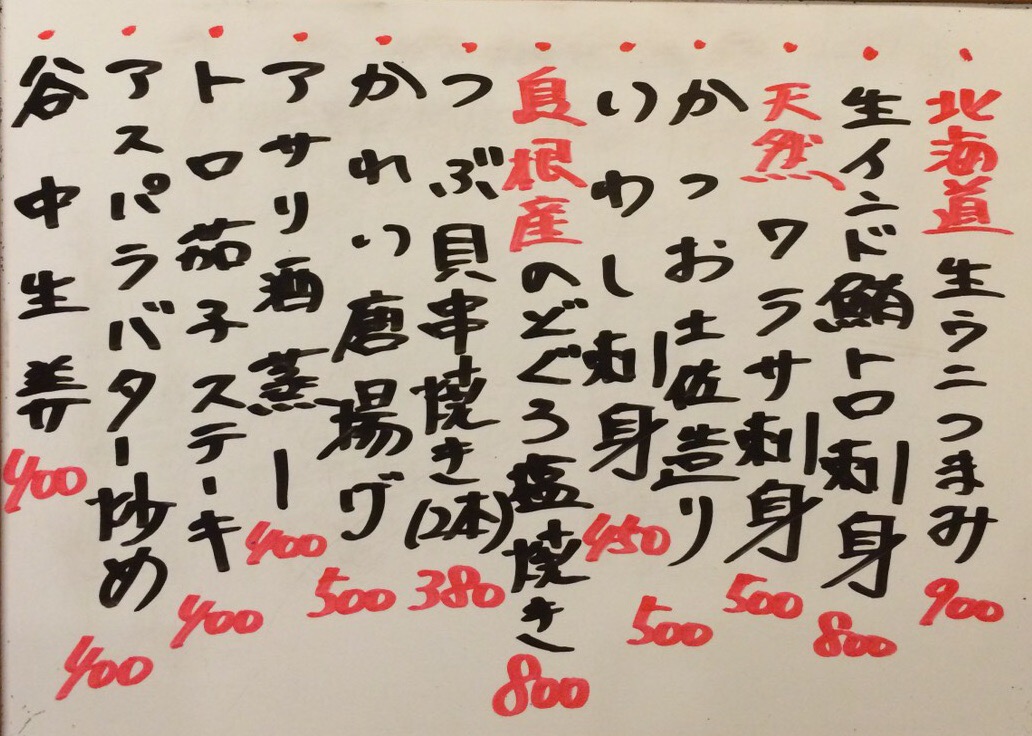 ・北海道 生ウニつまみ 900
・生インド鮪トロ刺身 800
・天然 ワラサ刺身 500
・かつお土佐造り 500
・いわし刺身 450
・島根産のどぐろ塩焼き 800
・つぶ貝串焼き(2本) 380
・かれい唐揚ゲ 500
・アサリ酒蒸し 400
・トロ茄子ステーキ 400
・アスパラバター炒め 400
・谷中生姜 400